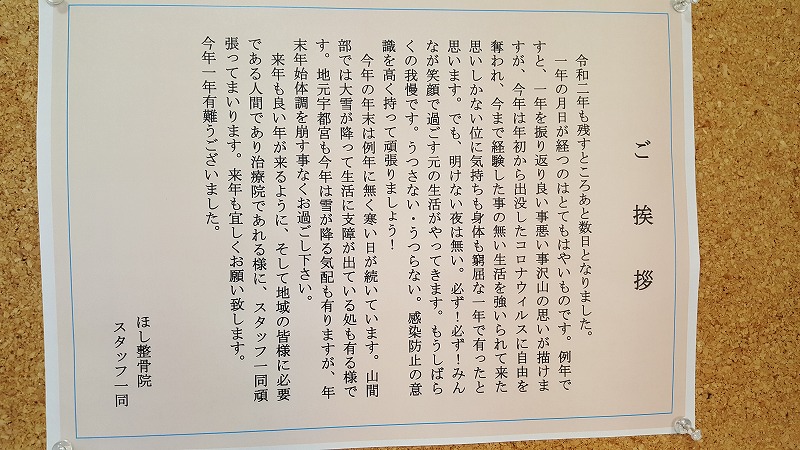 ご挨拶
令和二年も残すところあと数日となりました。
一年の月日が経つのはとてもはやいものです。例年で
すと、一年を振り返り良い事悪い事沢山の思いが描けま
すが、今年は年初から出没したコロナウィルスに自由を
奪われ、今まで経験した事の無い生活を強いられて来た
思いしかない位に気持ちも身体も窮屈な一年で有ったと
思います。でも、明けない夜は無い。必ず！必ず！みん
なが笑顔で過ごす元の生活がやってきます。もうしばら
くの我慢です。うつさない・うつらない。感染防止の意
識を高く持って頑張りましょう！
今年の年末は例年に無く寒い日が続いています。山間
部では大雪が降って生活に支障が出ている処も有る様で
す。地元宇都宮も今年は雪が降る気配も有りますが、年
末年始体調を崩す事なくお過ごし下さい。
来年も良い年が来るように、そして地域の皆様に必要
である人間であり治療院であれる様に、スタッフ一同頑
張ってまいります。来年も宜しくお願い致します。
今年一年有難うございました。
ほし整骨院
スタッフ一同